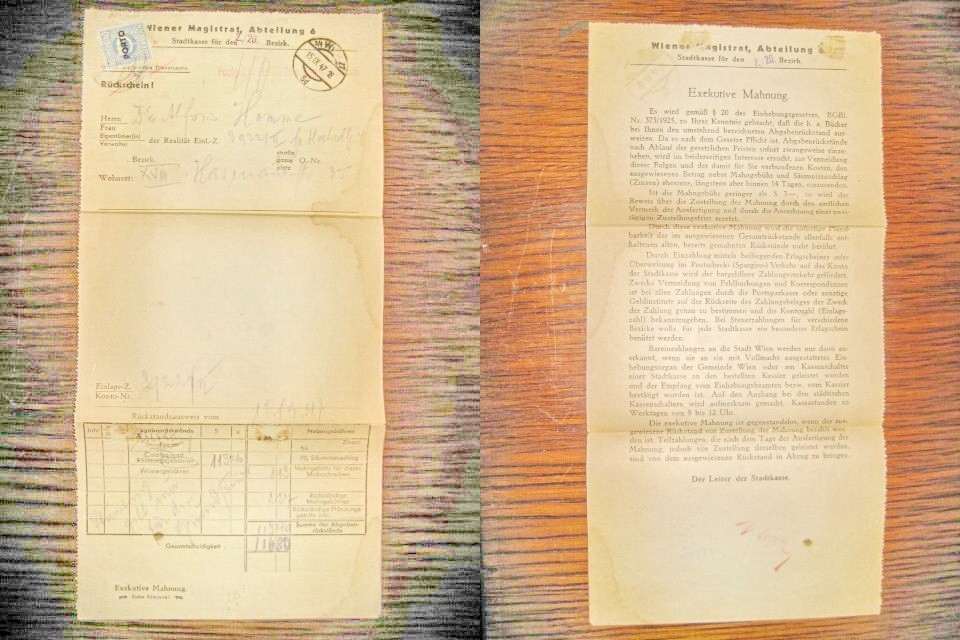 PORTO
Wiener Magistrat, Abteilung 6
Stadtkasse für den 2. 20. Bezirk.
Rückschein!
Herrn Dr Alfons
Frau
Eigentümer(in)
Verwalter der Realität Einl.-Z.
straße
Bezirk. gasse O.-Nr.
platz
Wohnort: XVIII
Einlage-Z.
Konto-Nr.
Rückstandsausweis vom
Jahr Abgabenrückstände S g Nebengebühren
Zinsen
2% Säumniszuschlag
Wassergebühren Mahngebühr für dieses
Mahnschreiben
Rückständige
Mahngebühren
Rückständige Pfändungs-
gebühr inkl.
Summe der Abgaben-
rückstände
Gesamtschuldigkeit
Exekutive Mahnung.
Wiener Magistrat, Abteilung 6
Stadtkasse für den 2. 20. Bezirk.
Exekutive Mahnung.
Es wird gemäß § 20 des Einhebungsgesetzes, BGBl.
Nr. 373/1925, zu Ihrer Kenntnis gebracht, daß die h. a. Bücher
bei Ihnen den umstehend bezeichneten Abgabenrückstand aus-
weisen. Da es nach dem Gesetze Pflicht ist, Abgabenrückstände
nach Ablauf der gesetzlichen Fristen sofort zwangsweise einzu-
heben, wird im beiderseitigen Interesse ersucht, zur Vermeidung
dieser Folgen und der damit für Sie verbundenen Kosten, den
ausgewiesenen Betrag nebst Mahngebühr und Säumniszuschlag
(Zinsen) ehestens, längstens aber binnen 14 Tagen, einzusenden.
Ist die Mahngebühr geringer als S 3—, so wird der
Beweis über die Zustellung der Mahnung durch den amtlichen
Vermerk der Ausfertigung und durch die Anrechnung einer zwei-
tägigen Zustellungsfrist ersetzt.
Durch diese exekutive Mahnung wird die sofortige Pfänd-
barkeit der im ausgewiesenen Gesamtrückstande allenfalls ent-
haltenen alten, bereits gemahnten Rückstände nicht berührt.
Durch Einzahlung mittels beiliegenden Erlagscheines oder
Überweisung im Postscheck- (Spargiro-) Verkehr auf das Konto
der Stadtkasse wird der bargeldlose Zahlungsverkehr gefördert.
Zwecks Vermeidung von Fehlbuchungen und Korrespondenzen
ist bei allen Zahlungen durch die Postsparkasse oder sonstige
Geldinstitute auf der Rückseite des Zahlungsbeleges der Zweck
der Zahlung genau zu bestimmen und die Kontozahl (Einlage-
zahl) bekanntzugeben. Bei Steuerzahlungen für verschiedene
Bezirke wolle für jede Stadtkasse ein besonderer Erlagschein
benützt werden.
Bareinzahlungen an die Stadt Wien werden nur dann an-
erkannt, wenn sie an ein mit Vollmacht ausgestattetes Ein-
hebungsorgan der Gemeinde Wien oder am Kassenschalter
einer Stadtkasse an den bestellten Kassier geleistet wurden
und der Empfang vom Einhebungsbeamten bezw. vom Kassier
bestätigt worden ist. Auf den Aushang bei den städtischen
Kassenschaltern wird aufmerksam gemacht. Kassastunden an
Werktagen, von 8 bis 12 Uhr.
Die exekutive Mahnung ist gegenstandslos, wenn der aus-
gewiesene Rückstand vor Zustellung der Mahnung bezahlt wor-
den ist. Teilzahlungen, die nach dem Tage der Ausfertigung der
Mahnung, jedoch vor Zustellung derselben geleistet wurden,
sind von dem ausgewiesenen Rückstand in Abzug zu bringen.
Der Leiter der Stadtkasse.